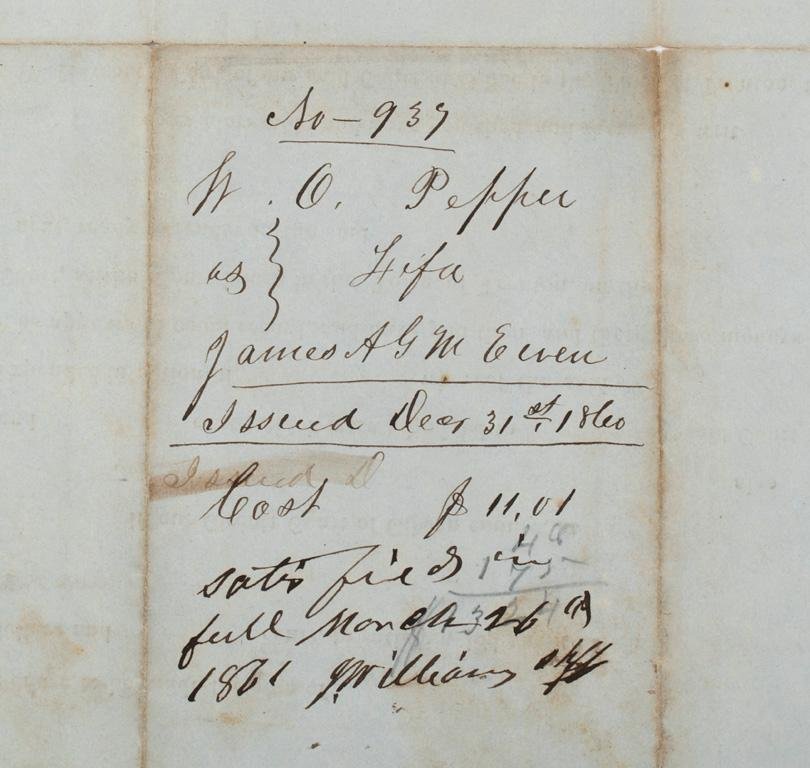 No - 937
W. O. Pepper
vs } Fifa
James A G M Ewen
Issued Decr 31st. 1860
Issued D
Cost $ 11,01
satisfied in
full March 26th
1861 J Williams